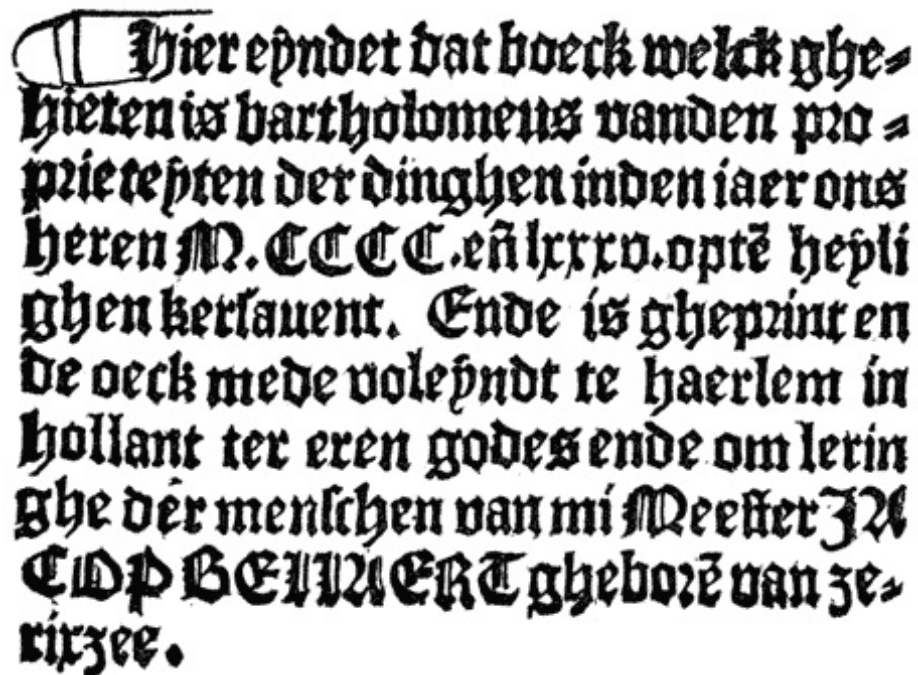 Hier eyndet dat boeck welck ghe⸗
hieten is bartholomeus vanden pro⸗
prieteyten der dinghen inden iaer ons
heren M.CCCC.eñ lxxxv.optē heyli
ghen kersauent. Ende is gheprint en
de oeck mede voleyndt te haerlem in
hollant ter eren godes ende om lerin
ghe der menschen van mi Meester JA
COP BELLAERT gheborē van ze⸗
rixzee.